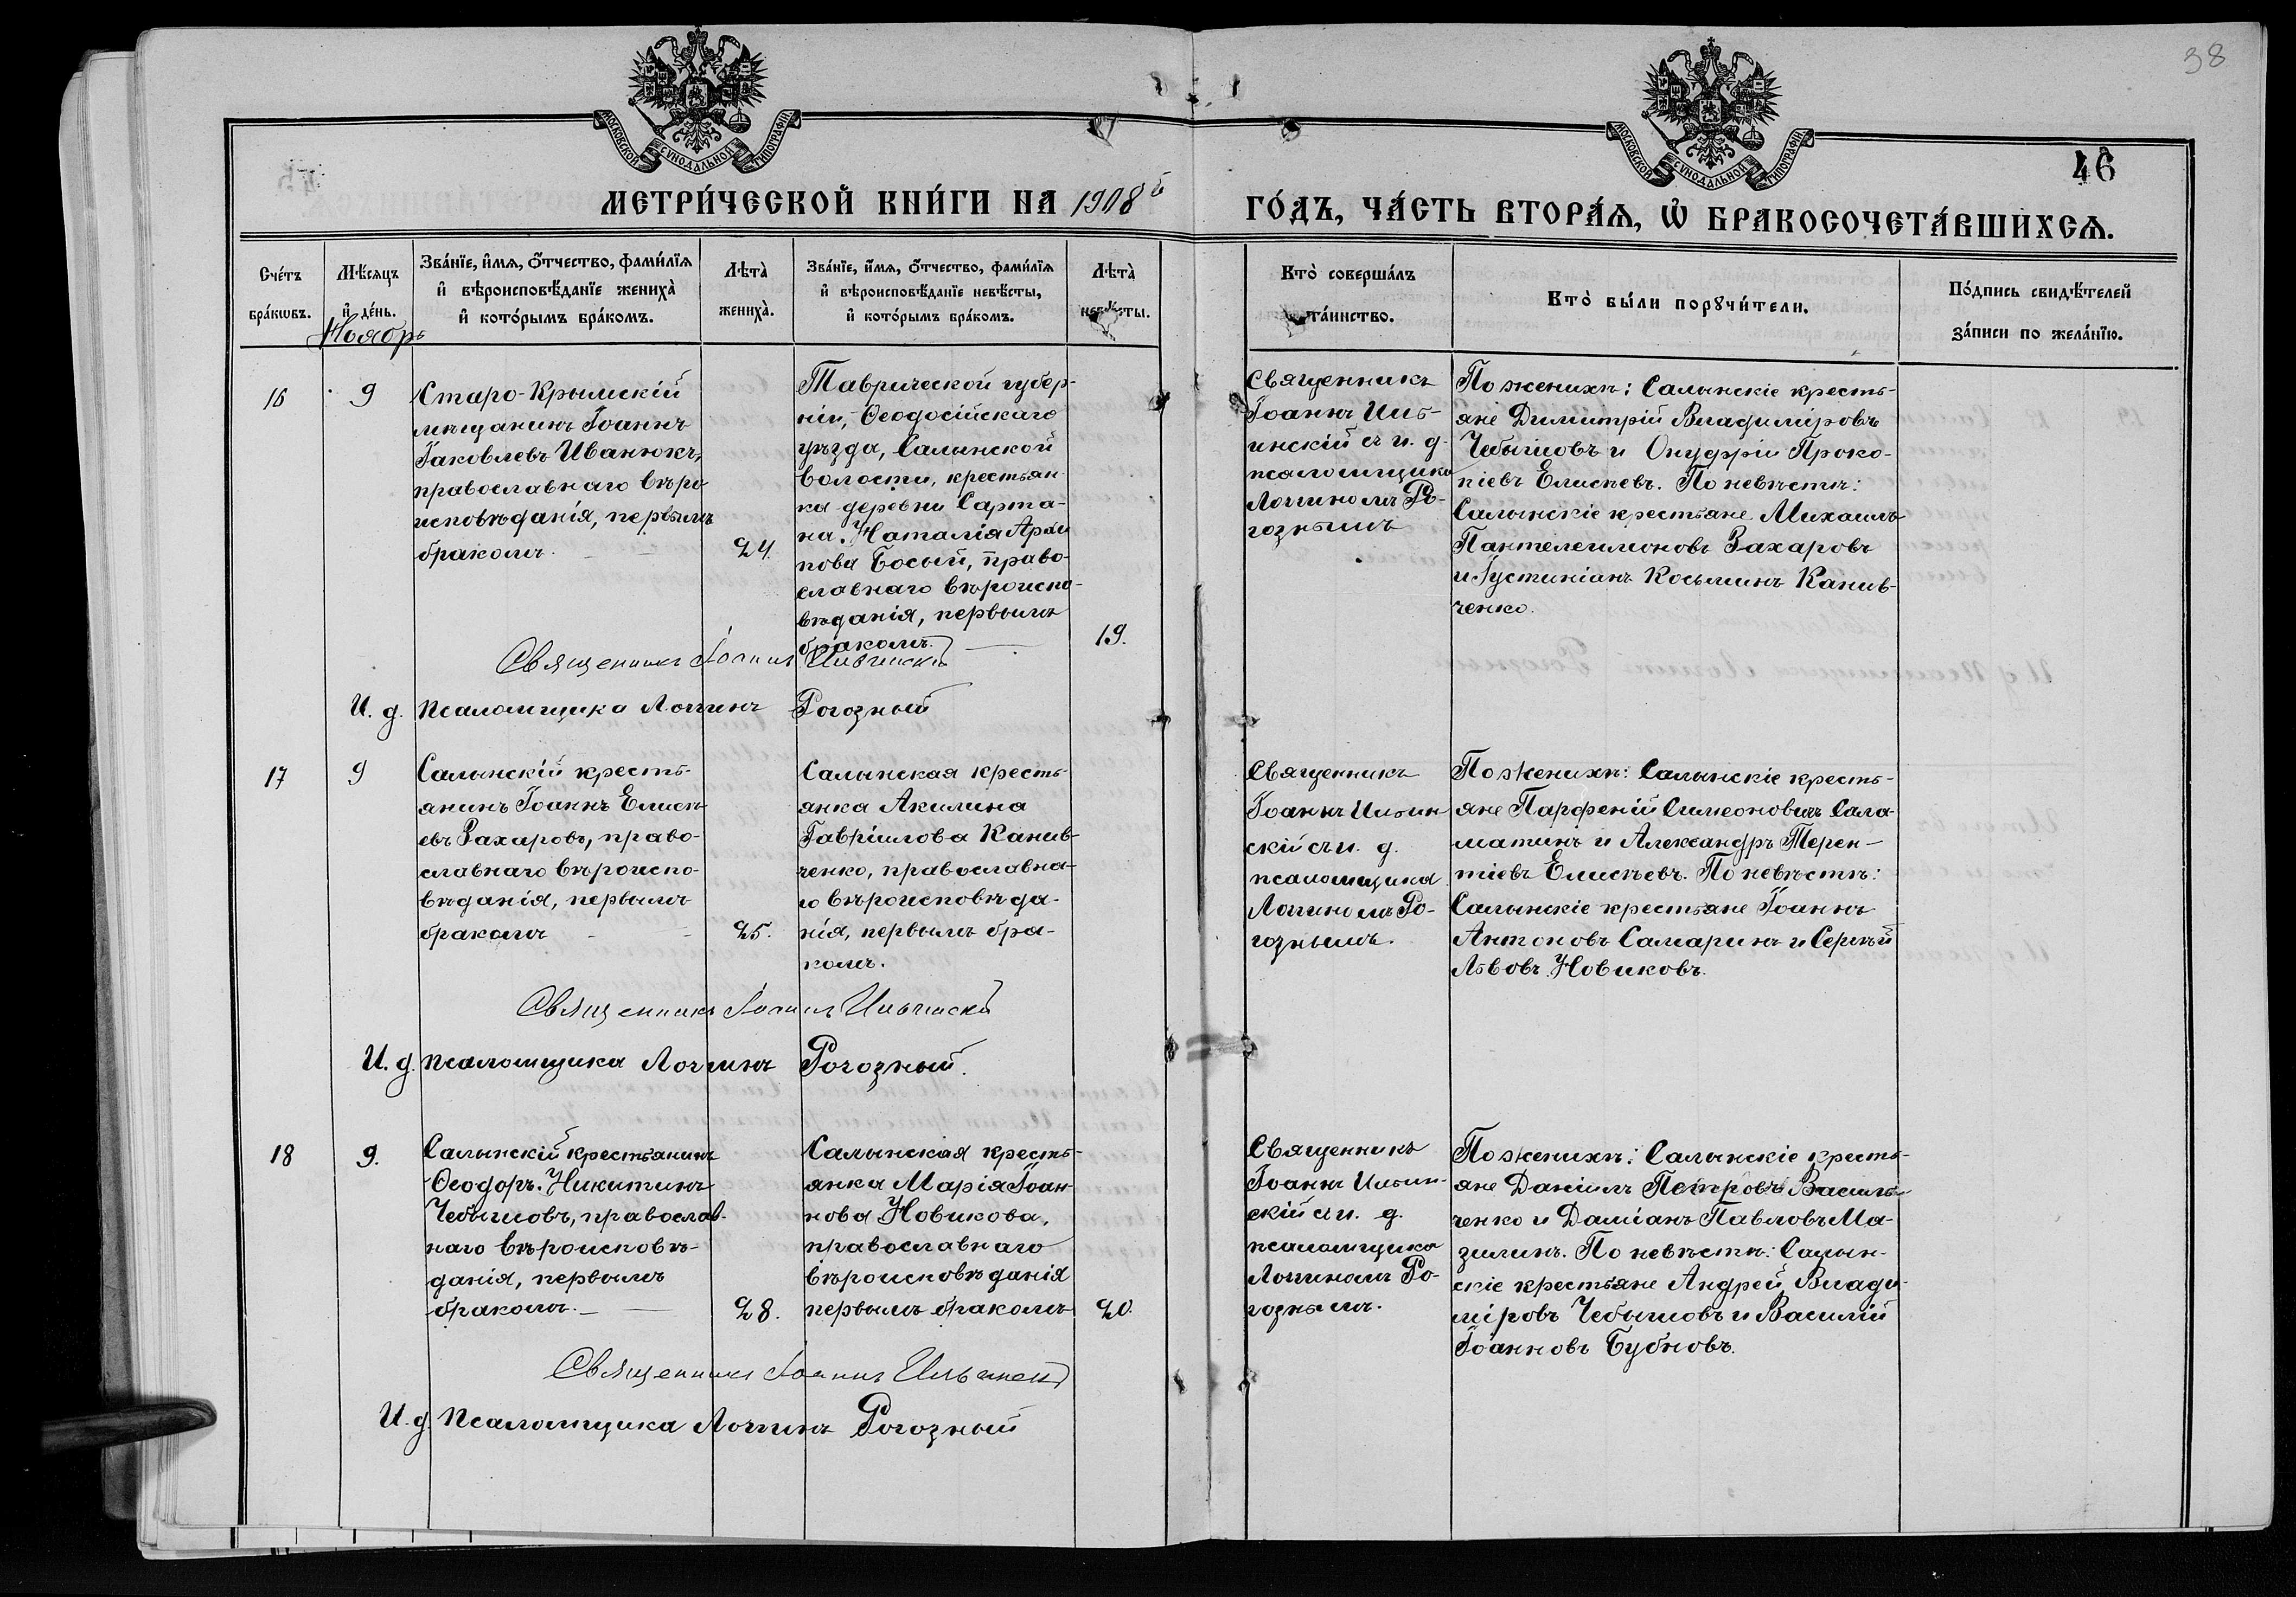 38
46
МОСКОВСКОЙ СѴНОДАЛЬНОЙ ТИПОГРАФІИ
МОСКОВСКОЙ СѴНОДАЛЬНОЙ ТИПОГРАФІИ
МЕТРИ́ЧЕСКОЙ КНИ́ГИ НА 1908й ГО́ДЪ, ЧА́СТЬ ВТОРА́Ѧ, Ѡ҆ БРАКОСОЧЕТА́ВШИХСѦ.
Сче́тъ бра́кѡвъ.
Мѣ́сяцъ и҆ де́нь.
Зва́нїе, и҆́мѧ, ѻ҆́тчество, фами́лїѧ
и҆ вѣроисповѣ́данїе жениха̀
и҆ кото́рымъ бра́комъ.
Лѣта̀ жениха̀.
Зва́нїе, и҆́мѧ, ѻ҆́тчество, фами́лїѧ
и҆ вѣроисповѣ́данїе невѣ́сты,
и҆ кото́рымъ бра́комъ.
Лѣта̀ невѣ́сты.
Кто̀ соверша́лъ
та́инство.
Кто̀ бы́ли порꙋчи́тели.
По́дпись свидѣ́телей
за́писи по жела́нїю.
Ноябрь
16
9
Старо-Крымскій
мѣщанинъ Іоаннъ
Іаковлевъ Иванюкъ,
православнаго вѣро
исповѣданія, первымъ
бракомъ.
24.
Таврической губер-
ніи, Ѳеодосійскаго
уѣзда, Салынской
волости, крестьян
ка деревни Сарта-
на. Наталія Архи
пова Босый, право-
славнаго вѣроиспо-
вѣданія, первымъ
бракомъ.
19.
Священникъ
Іоаннъ Иль-
инскій съ и. д.
псаломщика
Логиномъ Ро-
гознымъ
По женихѣ: Салынскіе кресть-
яне Димитрій Владиміровъ
Чебышовъ и Онуфрій Проко-
піевъ Елисѣевъ. По невѣстѣ:
Салынскіе крестьяне Михаилъ
Пантелеимоновъ Захаровъ
и Іустиніанъ Косьминъ Канив-
ченко.
Священникъ Іоаннъ Ильинскій
И. д. псаломщика Логгинъ Рогозный
17
9
Салынскій кресть-
янинъ Іоаннъ Елисѣ-
евъ Захаровъ, право-
славнаго вѣроиспо-
вѣданія, первымъ
бракомъ
25.
Салынская кресть-
янка Акилина
Гавріилова Канив-
ченко, православна-
го вѣроисповѣда-
нія, первымъ бра-
комъ.
Священникъ
Іоаннъ Ильин
скій съ и. д.
псаломщика
Логиномъ Ро-
гознымъ.
По женихѣ: Салынскіе кресть-
яне Парфеній Симеоновичъ Сала-
матинъ и Александръ Терен-
тіевъ Елисѣевъ. По невѣстѣ:
Салынскіе крестьяне Іоаннъ
Антоновъ Самаринъ и Сергѣй
Львовъ Новиковъ.
Священникъ Іоаннъ Ильинскій
И. д. псаломщика Логгинъ Рогозный.
18
9.
Салынскій крестьянинъ
Ѳеодоръ Никитинъ
Чебышовъ, православ-
наго вѣроисповѣ-
данія, первымъ
бракомъ.
28.
Салынская кресть-
янка Марія Іоан-
нова Новикова,
православнаго
вѣроисповѣданія
первымъ бракомъ
20.
Священникъ
Іоаннъ Ильин-
скій съ и. д.
псаломщика
Логиномъ Ро-
гознымъ.
По женихѣ: Салынскіе кресть-
яне Даніилъ Петровъ Василь-
ченко и Даміанъ Павловъ Ма-
зилинъ. По невѣстѣ: Салын-
скіе крестьяне Андрей Влади-
міровъ Чебышовъ и Василій
Іоанновъ Бубновъ.
Священникъ Іоаннъ Ильинскій
И. д. псаломщика Логгинъ Рогозный